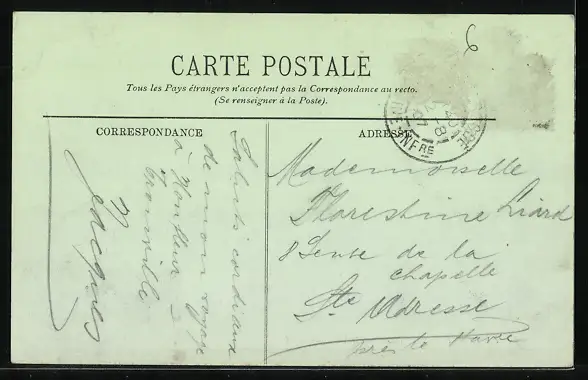 6
CARTE POSTALE
Tous les Pays étrangers n'acceptent pas la Correspondance au recto.
(Se renseigner à la Poste).
CORRESPONDANCE
Saluts cordiaux
de mon voyage
à Honfleur
Trouville
Jacques
ADRESSE
Mademoiselle
Florestine Liard
8 Sente de la
chapelle
Ste Adresse
près le Havre
INF RE